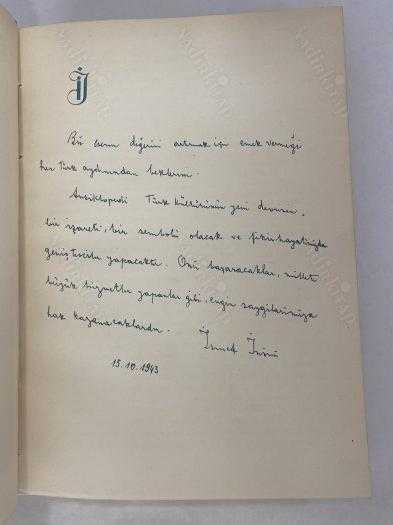 İ
Bu eserin değerini artırmak için emek vermeği
her Türk aydınından beklerim.
Ansiklopedi Türk kültürünün yeni devrinin,
bir işareti, bir sembolü olacak ve fikir hayatımızda
geniş tesirler yapacaktır. Onu başaracaklar, millete
büyük hizmetler yapanlar gibi, engin saygılarımıza
hak kazanacaklardır.
İsmet İnönü
15.10.1943
nadirkitap